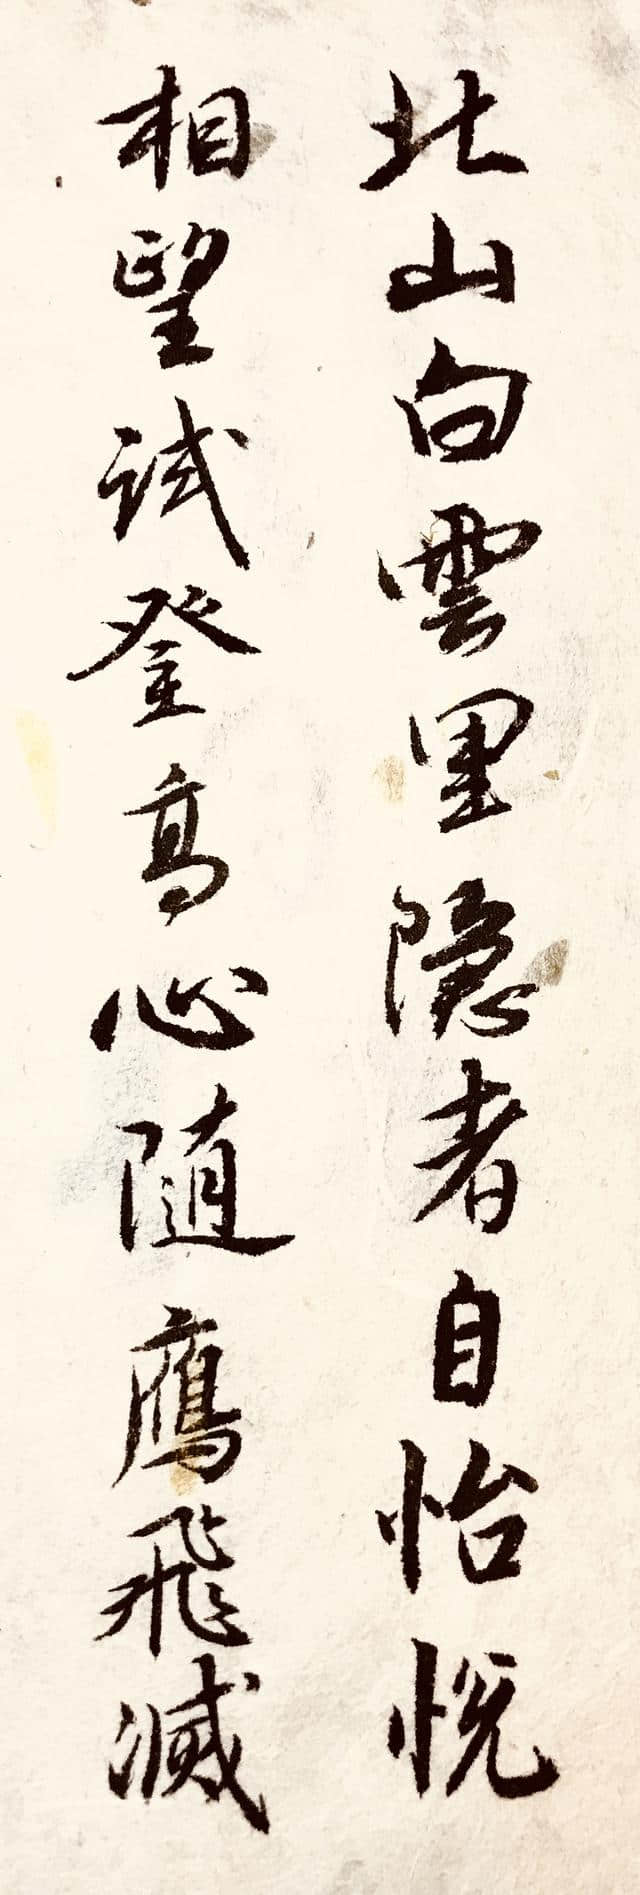 北山白雲里隐者自怡悦
相望试登高心随鷹飛滅